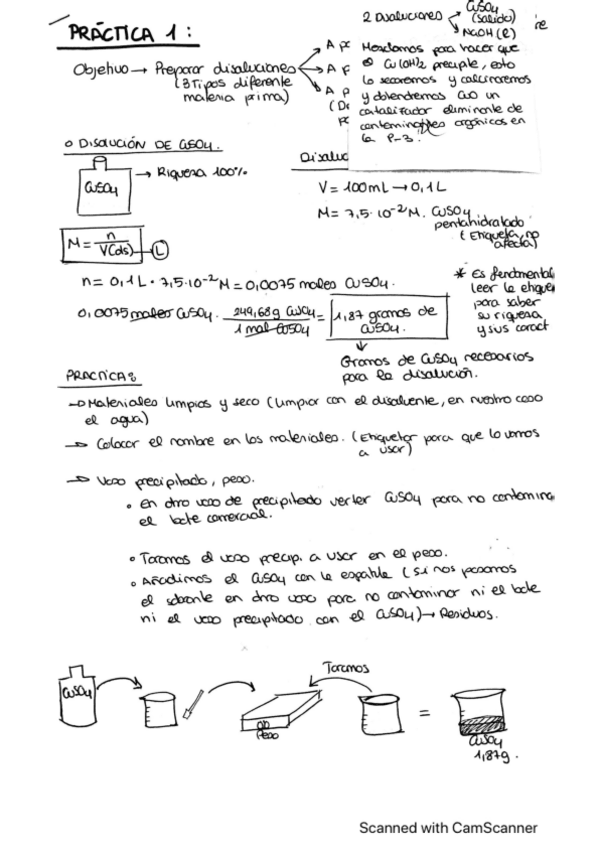 PRÁCTICA 1:
Objetivo → Preparar disoluciones
(3 Tipos diferente
materia prima)
A
A
A
2 Disoluciones
CuSO4
(salido)
NaOH (l)
Mezclamos para hacer que
Cu(OH)2 precipite, esto
lo secaremos y calcinaremos
y obtendremos CuO un
catalizador eliminante de
contaminantes orgánicos en
la P-3.
○ DISOLUCIÓN DE CuSO4.
CuSO4
→ Riqueza 100%
Disoluc
V = 100mL → 0,1L
M = 7,5·10-2 M. CuSO4
pentahidratado
(Etiqueta no
afecta)
M = n
V(ds) → L
n = 0,1L · 7,5·10-2 M = 0,0075 moles CuSO4.
0,0075 moles CuSO4. 249,68g CuSO4 = 1,87 gramos de
1 mol CuSO4 CuSO4.
* Es fundmental
leer la etique
para saber
su riqueza
y sus caract
Gramos de CuSO4 necesarios
para la disolución.
PRACTICA:
→ Materiales limpios y seco (Limpiar con el disolvente, en nuestro caso
el agua)
→ Colocar el nombre en los materiales. (Etiquetar para que lo vamos
a usar)
→ Vaso precipitado, peso.
• En otro vaso de precipitado verter CuSO4 para no contamina
el bote comercial.
• Taramos el vaso precip. a usar en el peso.
• Añadimos el CuSO4 con la espatula (si nos pasamos
el sobrante en otro vaso para no contaminar ni el bote
ni el vaso precipitado con el CuSO4) → Residuos.
Taramos
CuSO4
Peso
=
CuSO4
1,87g.
Scanned with CamScanner